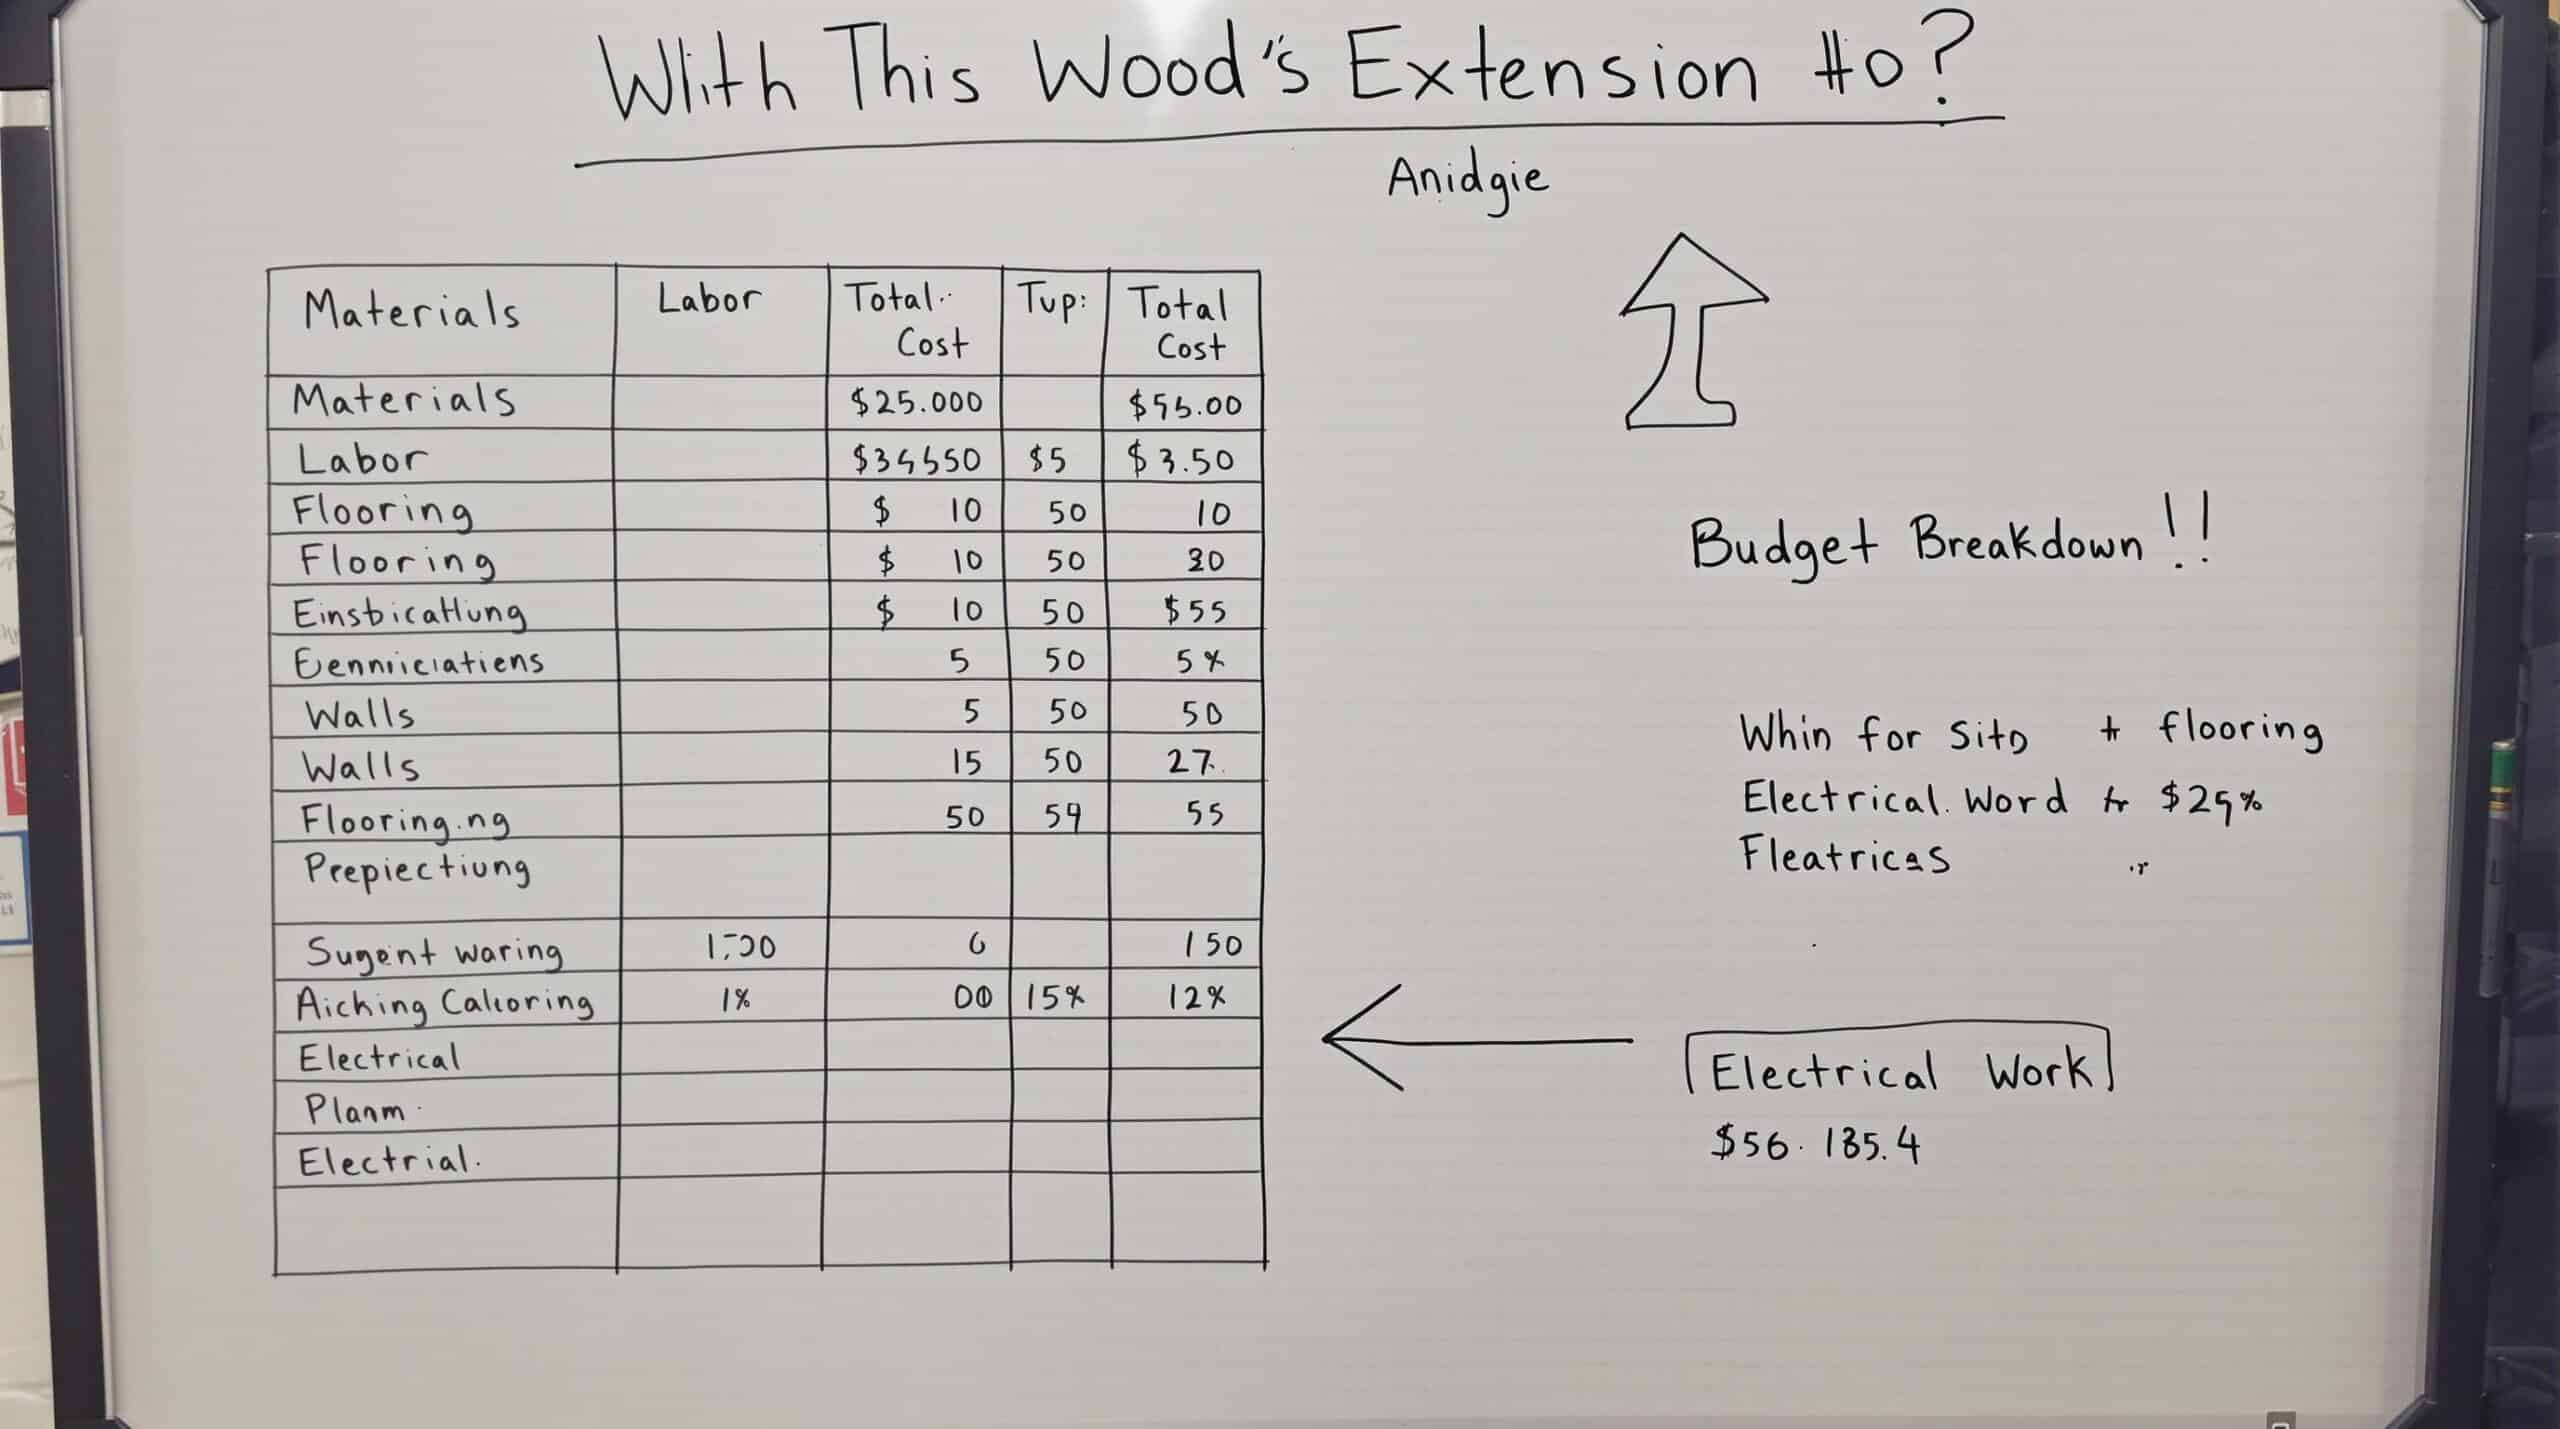 With This Wood's Extension #0?
Anidgie
Materials Labor Total Cost Tup: Total Cost
Materials $25.000 $55.00
Labor $34550 $5 $3.50
Flooring $ 10 50 10
Flooring $ 10 50 30
Einsbicatlung $ 10 50 $55
Eenniiciatiens 5 50 5%
Walls 5 50 50
Walls 15 50 27.
Flooring.ng 50 59 55
Prepiectiung
Sugent waring 6 150
Aicking Calioring 1% 00 15% 12%
Electrical
Planm.
Electrial.
Budget Breakdown!!
Whin for Sito + flooring
Electrical. Word $25%
Fleatricas
Electrical Work
$56.185.4